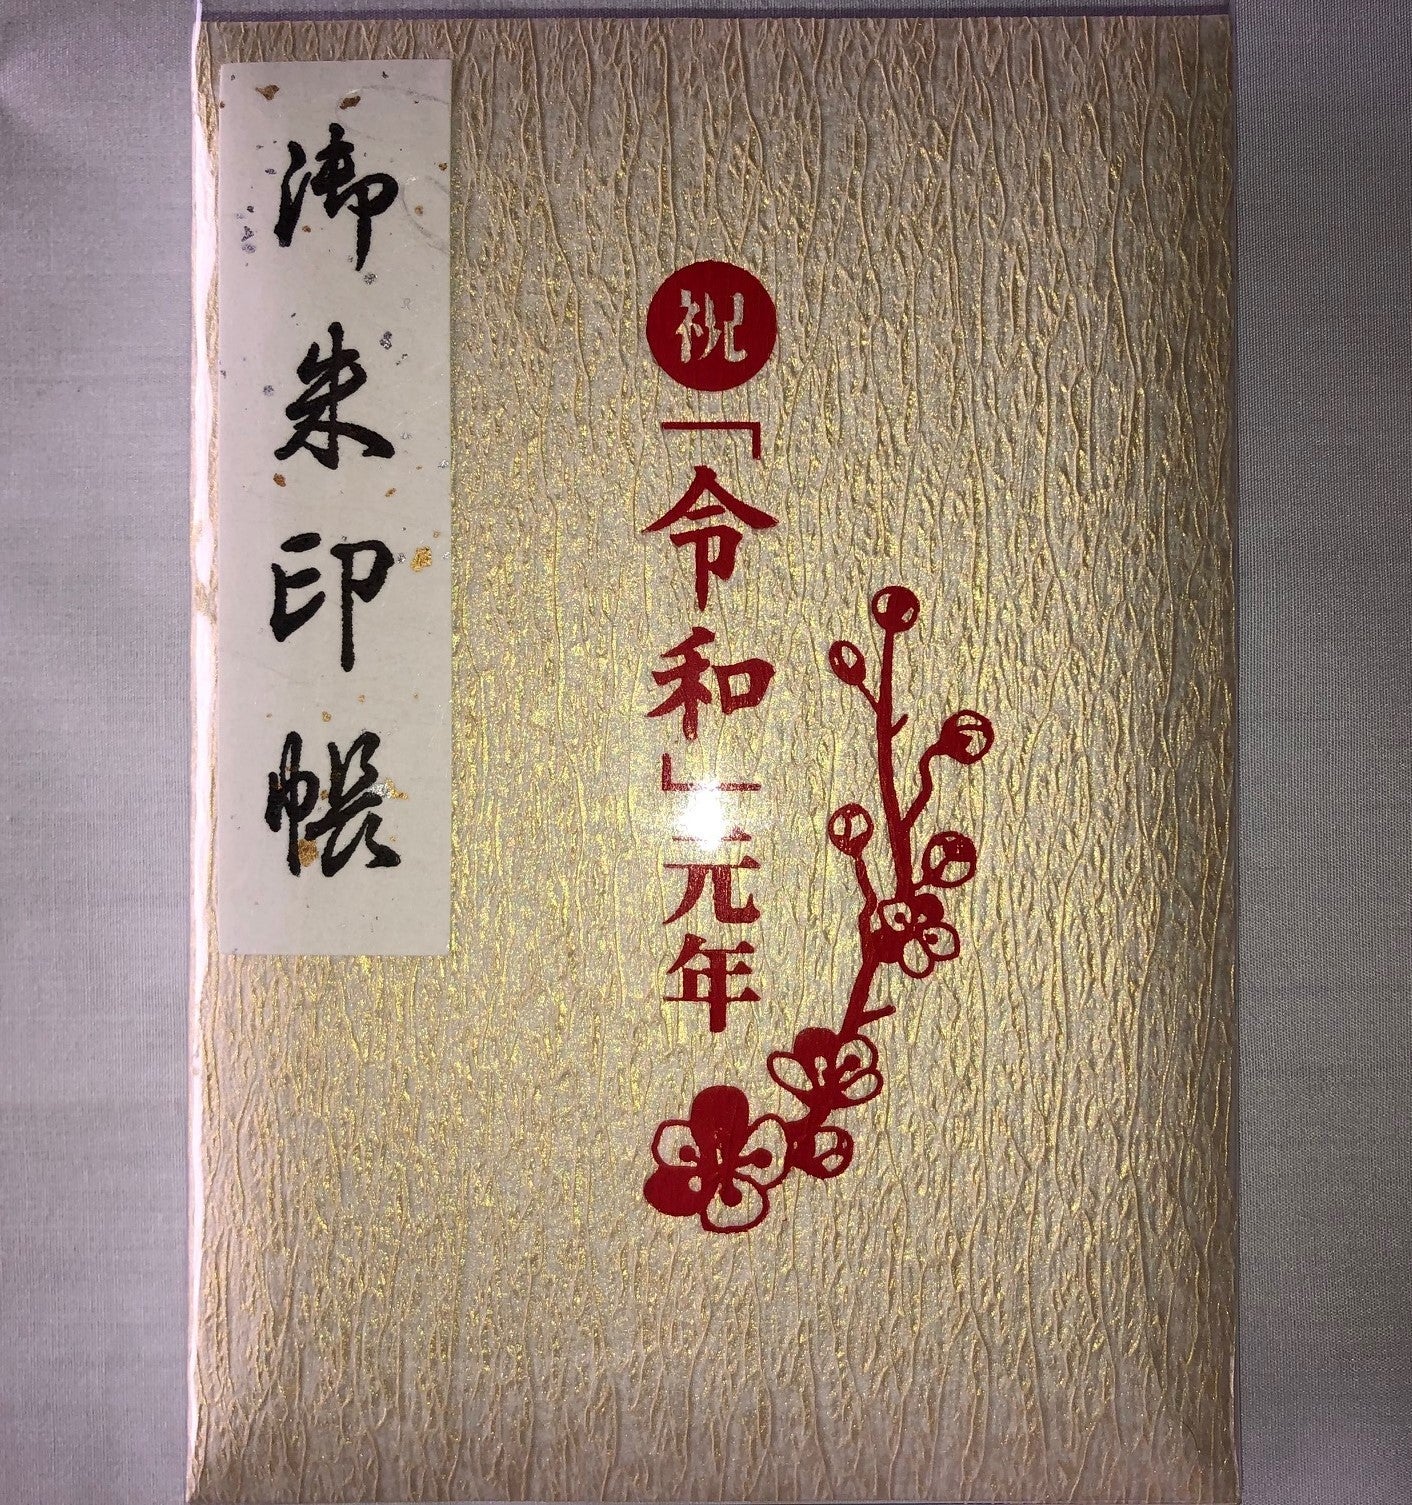 祝「令和」元年
御朱印帳